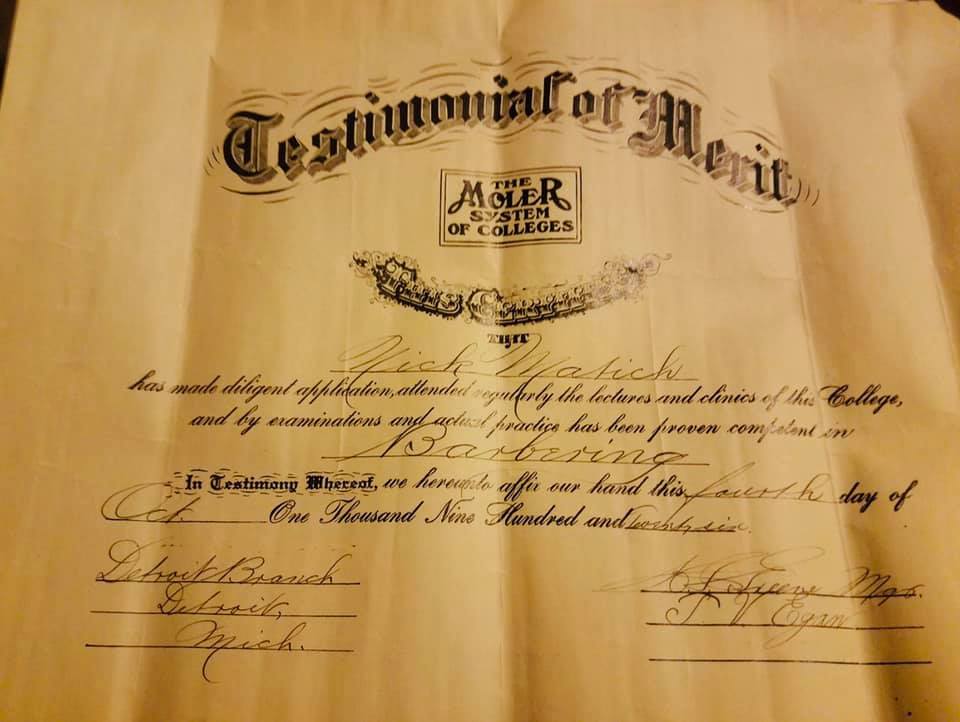 Testimonial of Merit
THE
MOLER
SYSTEM
OF COLLEGES
This Certifies
THAT
Nick Matich
has made diligent application, attended regularly the lectures and clinics of this College,
and by examinations and actual practice has been proven competent in
Barbering
In Testimony Whereof, we hereunto affix our hand this fourth day of
Oct. One Thousand Nine Hundred and twenty six.
Detroit Branch
Detroit,
Mich.
Mgr.
Egan